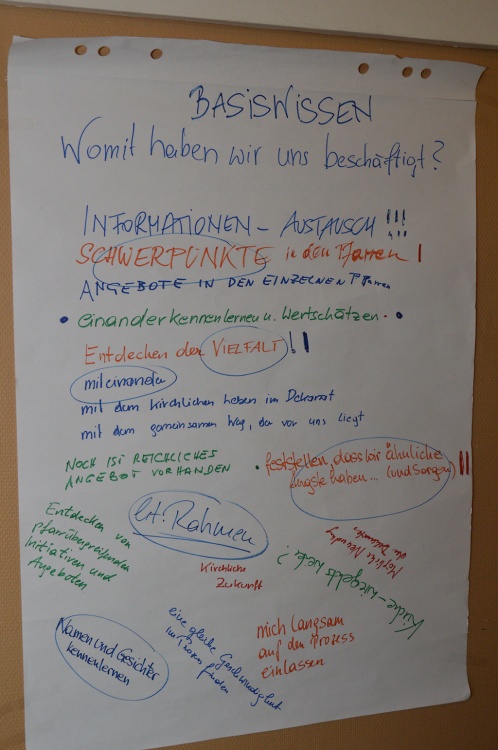 BASISWISSEN
Womit haben wir uns beschäftigt?
INFORMATIONEN - AUSTAUSCH !!!
SCHWERPUNKTE in den Pfarren !
ANGEBOTE IN DEN EINZELNEN Pfarren
• einander kennenlernen u. Wertschätzen. •
Entdecken der VIELFALT !!
miteinander
mit dem kirchlichen Leben im Dekanat
mit dem gemeinsamen Weg, der vor uns liegt
NOCH IST REICHLICHES
ANGEBOT VORHANDEN
• feststellen, dass wir ähnliche
Ängste haben... (und Sorgen) !!
Entdecken von
pfarrübergreifenden
Initiativen und
Angeboten
lit. Rahmen
Kirchliche
Zukunft
Kirche - wie geht's weiter?
Namen und Gesichter
kennenlernen
eine gleiche Geschwindigkeit
im finden
mich langsam
auf den Prozess
einlassen